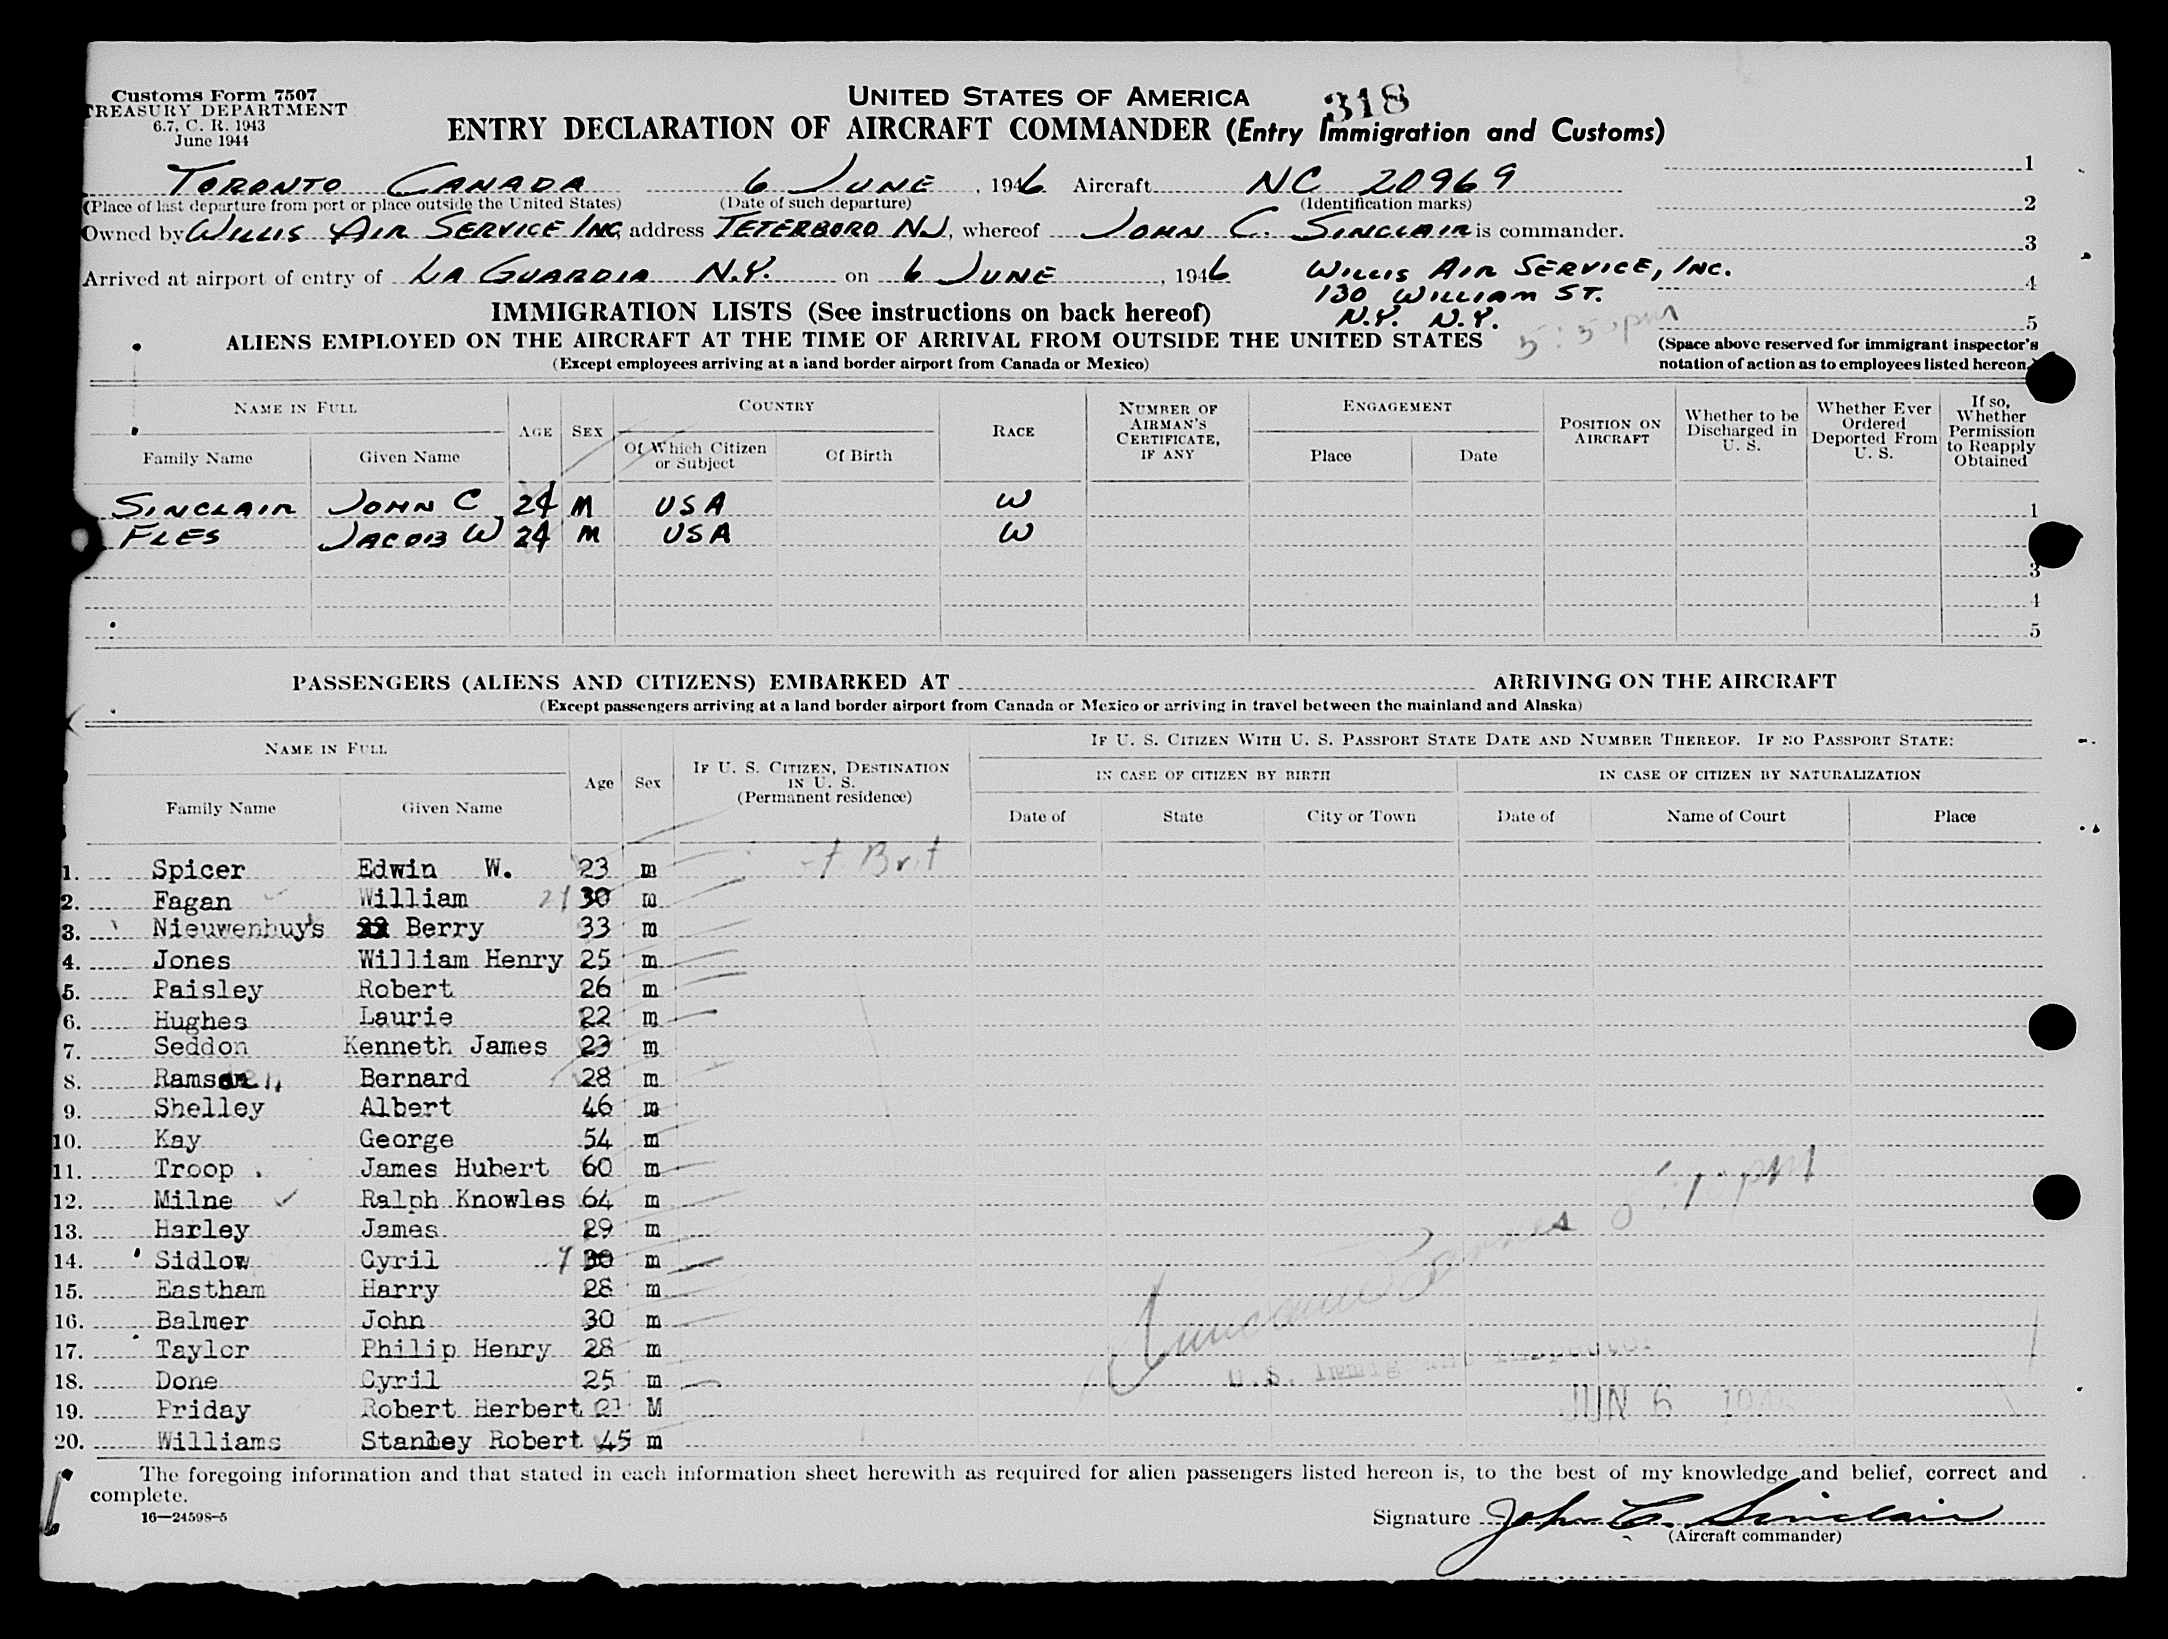 Customs Form 7507
TREASURY DEPARTMENT
6.7, C. R. 1943
June 1944
UNITED STATES OF AMERICA
318
ENTRY DECLARATION OF AIRCRAFT COMMANDER (Entry Immigration and Customs)
TORONTO CANADA 6 JUNE , 1946 Aircraft NC 20969 1
(Place of last departure from port or place outside the United States) (Date of such departure) (Identification marks) 2
Owned by WILLIS AIR SERVICE INC, address TETERBORO NJ, whereof JOHN C. SINCLAIR is commander. 3
Arrived at airport of entry of LA GUARDIA N.Y. on 6 JUNE , 1946 WILLIS AIR SERVICE, INC.
130 WILLIAM ST. 4
N.Y. N.Y.
IMMIGRATION LISTS (See instructions on back hereof) 5
ALIENS EMPLOYED ON THE AIRCRAFT AT THE TIME OF ARRIVAL FROM OUTSIDE THE UNITED STATES
(Space above reserved for immigrant inspector's
notation of action as to employees listed hereon.)
(Except employees arriving at a land border airport from Canada or Mexico)
NAME IN FULL AGE SEX COUNTRY RACE NUMBER OF AIRMAN'S CERTIFICATE, IF ANY ENGAGEMENT POSITION ON AIRCRAFT Whether to be Discharged in U. S. Whether Ever Ordered Deported From U. S. If so, Whether Permission to Reapply Obtained
Family Name Given Name Of Which Citizen or Subject Of Birth Place Date
SINCLAIR JOHN C 24 M USA W 1
FLES JACOB W 24 M USA W
3
4
5
PASSENGERS (ALIENS AND CITIZENS) EMBARKED AT ARRIVING ON THE AIRCRAFT
(Except passengers arriving at a land border airport from Canada or Mexico or arriving in travel between the mainland and Alaska)
NAME IN FULL Age Sex IF U. S. CITIZEN, DESTINATION IN U. S. (Permanent residence) IF U. S. CITIZEN WITH U. S. PASSPORT STATE DATE AND NUMBER THEREOF. IF NO PASSPORT STATE:
IN CASE OF CITIZEN BY BIRTH IN CASE OF CITIZEN BY NATURALIZATION
Family Name Given Name Date of State City or Town Date of Name of Court Place
1. Spicer Edwin W. 23 m Brit
2. Fagan William 30 m
3. Nieuwenhuys Berry 33 m
4. Jones William Henry 25 m
5. Paisley Robert 26 m
6. Hughes Laurie 22 m
7. Seddon Kenneth James 23 m
8. Bernard 28 m
9. Shelley Albert 46 m
10. Kay George 54 m
11. Troop James Hubert 60 m
12. Milne Ralph Knowles 64 m
13. Harley James 29 m
14. Sidlow Cyril 30 m
15. Eastham Harry 28 m
16. Balmer John 30 m
17. Taylor Philip Henry 28 m
18. Done Cyril 25 m
19. Priday Robert Herbert 21 M
20. Williams Stanley Robert 45 m
U.S. Immigrant Inspector
JUN 6 1946
The foregoing information and that stated in each information sheet herewith as required for alien passengers listed hereon is, to the best of my knowledge and belief, correct and
complete.
16—24598-5
Signature John C. Sinclair
(Aircraft commander)